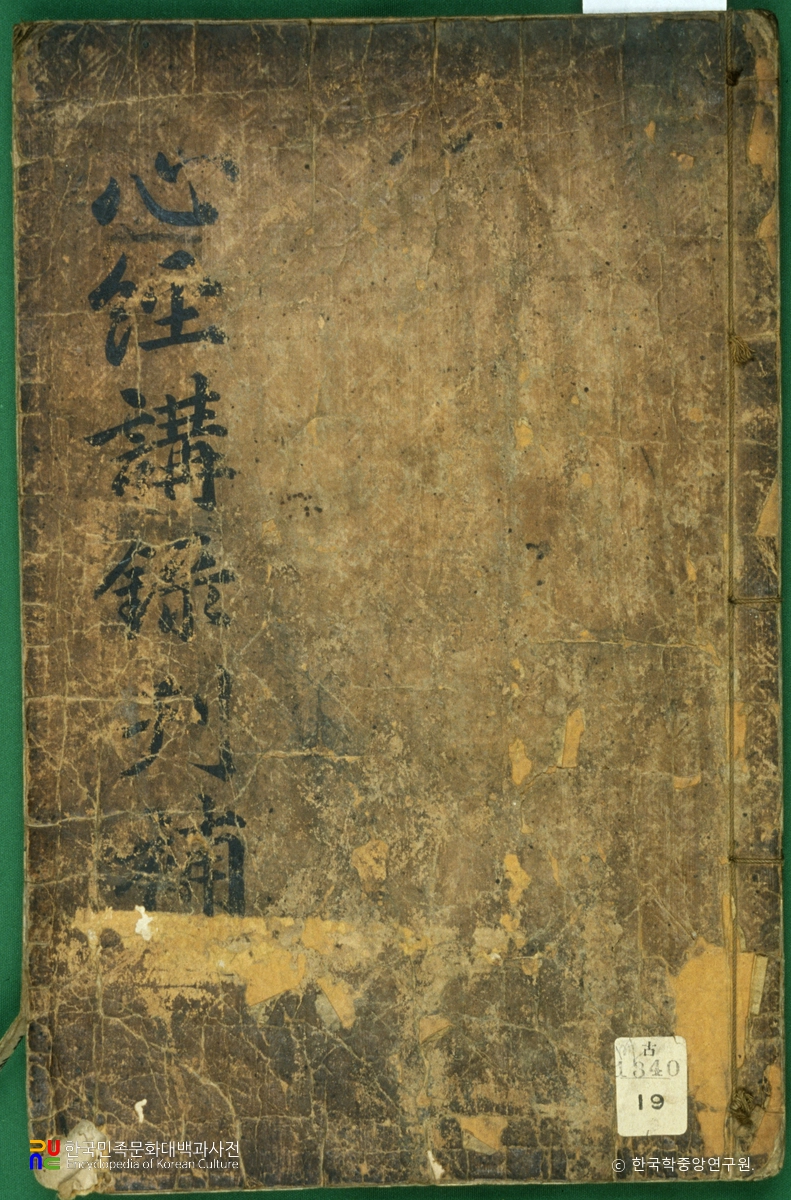 心經講錄刊補
古
1340
19
한국민족문화대백과사전
Encyclopedia of Korean Culture
© 한국학중앙연구원